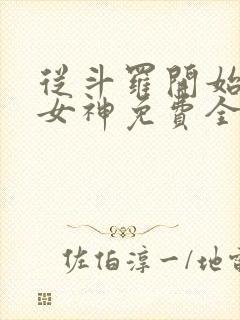 從斗羅開始
女神免費全
佐伯淳一/地